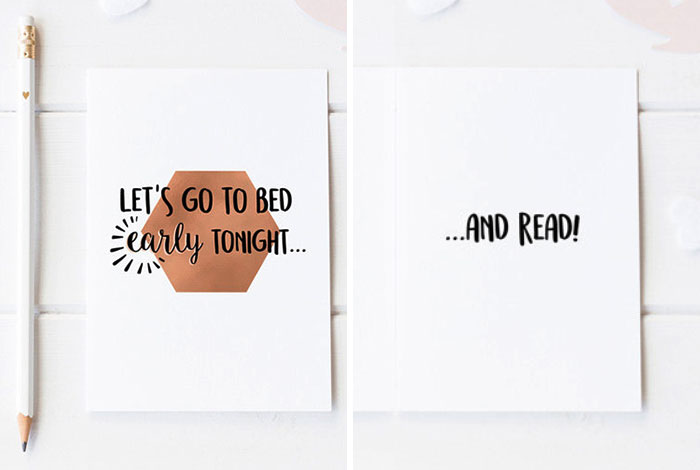 LET'S GO TO BED
early TONIGHT...
...AND READ!